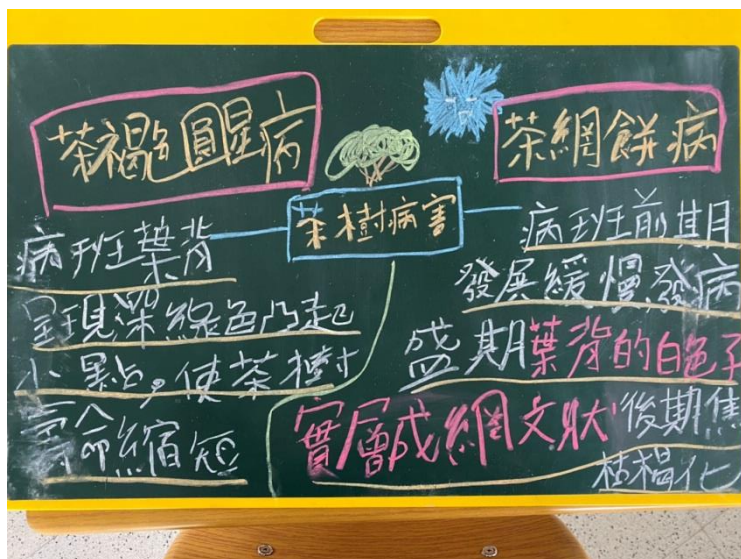 茶褐色圓星病
茶樹病害
茶網餅病
病班葉背
呈現深綠色凸起
小點。使茶樹
壽命縮短
病班前期
發展緩慢,發病
盛期葉背的白色子
實層鹹網文狀後期焦
枯褐化